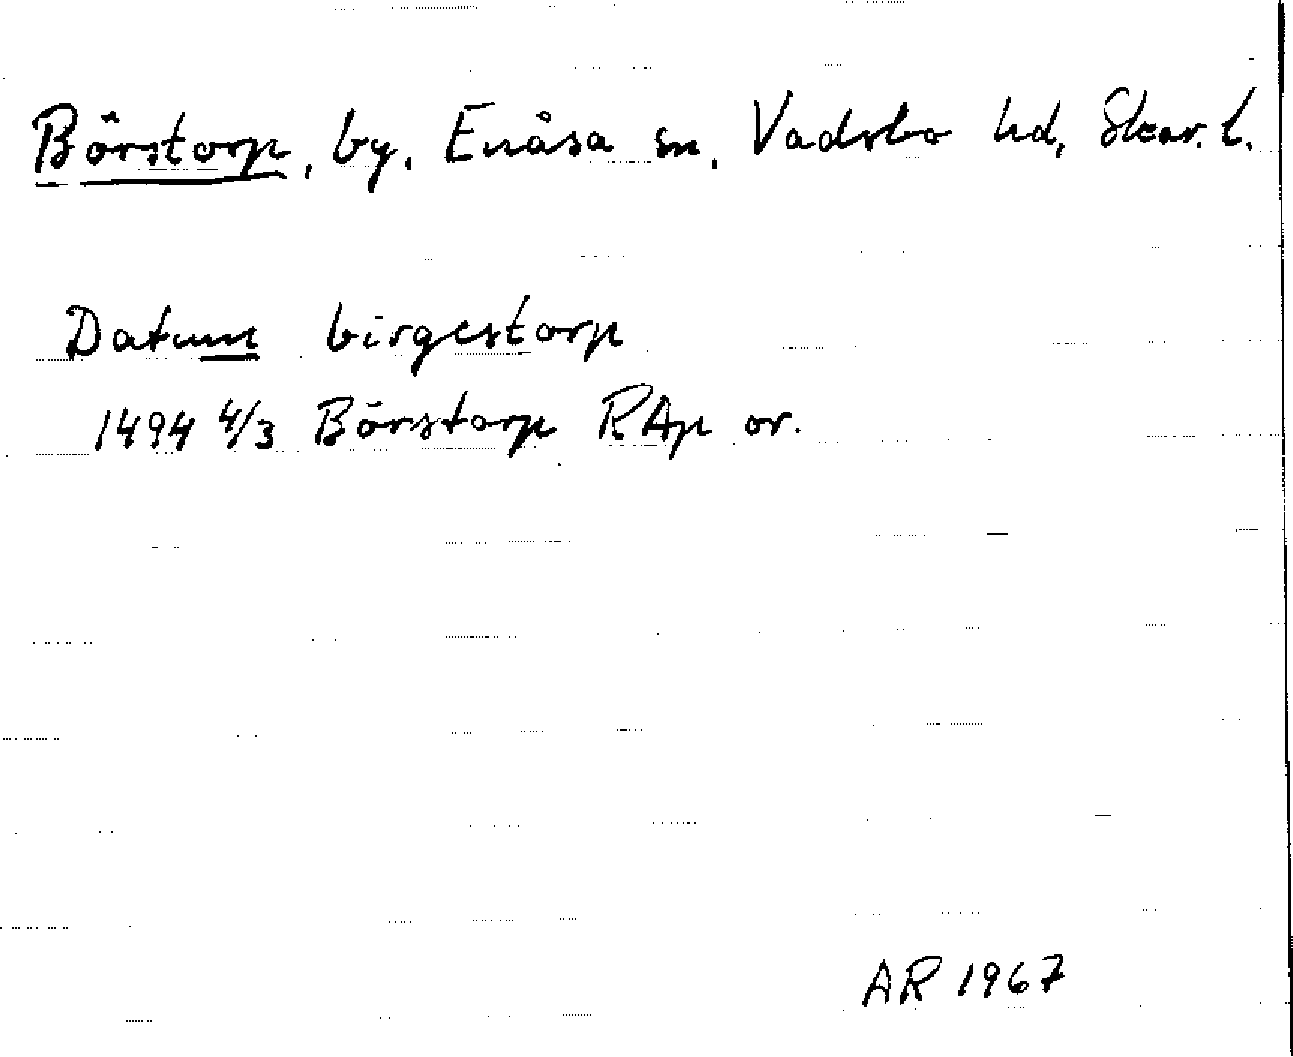 Börstorp, by, Enåsa sn, Vadsbo hd, Skar. l.
Datum birgestorp
1494 4/3 Börstorp RAp or.
AR 1967